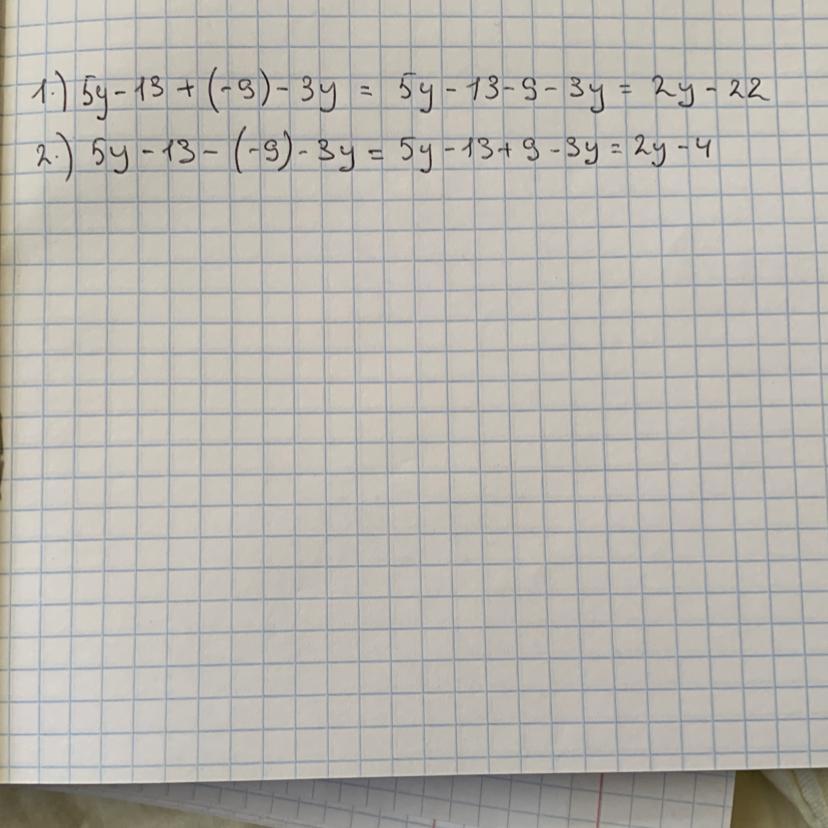 1.) 5y - 13 + (-9) - 3y = 5y - 13 - 9 - 3y = 2y - 22
2.) 5y - 13 - (-9) - 3y = 5y - 13 + 9 - 3y = 2y - 4